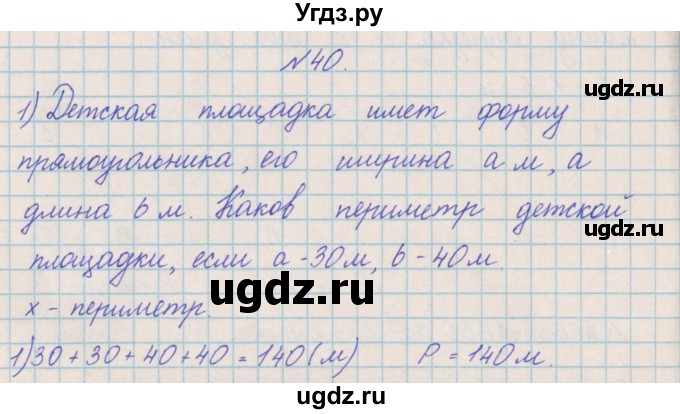 Угдз.ру
ugdz.ru
№40.
1) Детская площадка имет форму
прямоугольника, его ширина а м, а
длина b м. Каков периметр детской
площадки, если а - 30 м, b - 40 м.
ugdz.ru
х - периметр.
1) 30 + 30 + 40 + 40 = 140 (м) Р = 140 м.
ugdz.ru